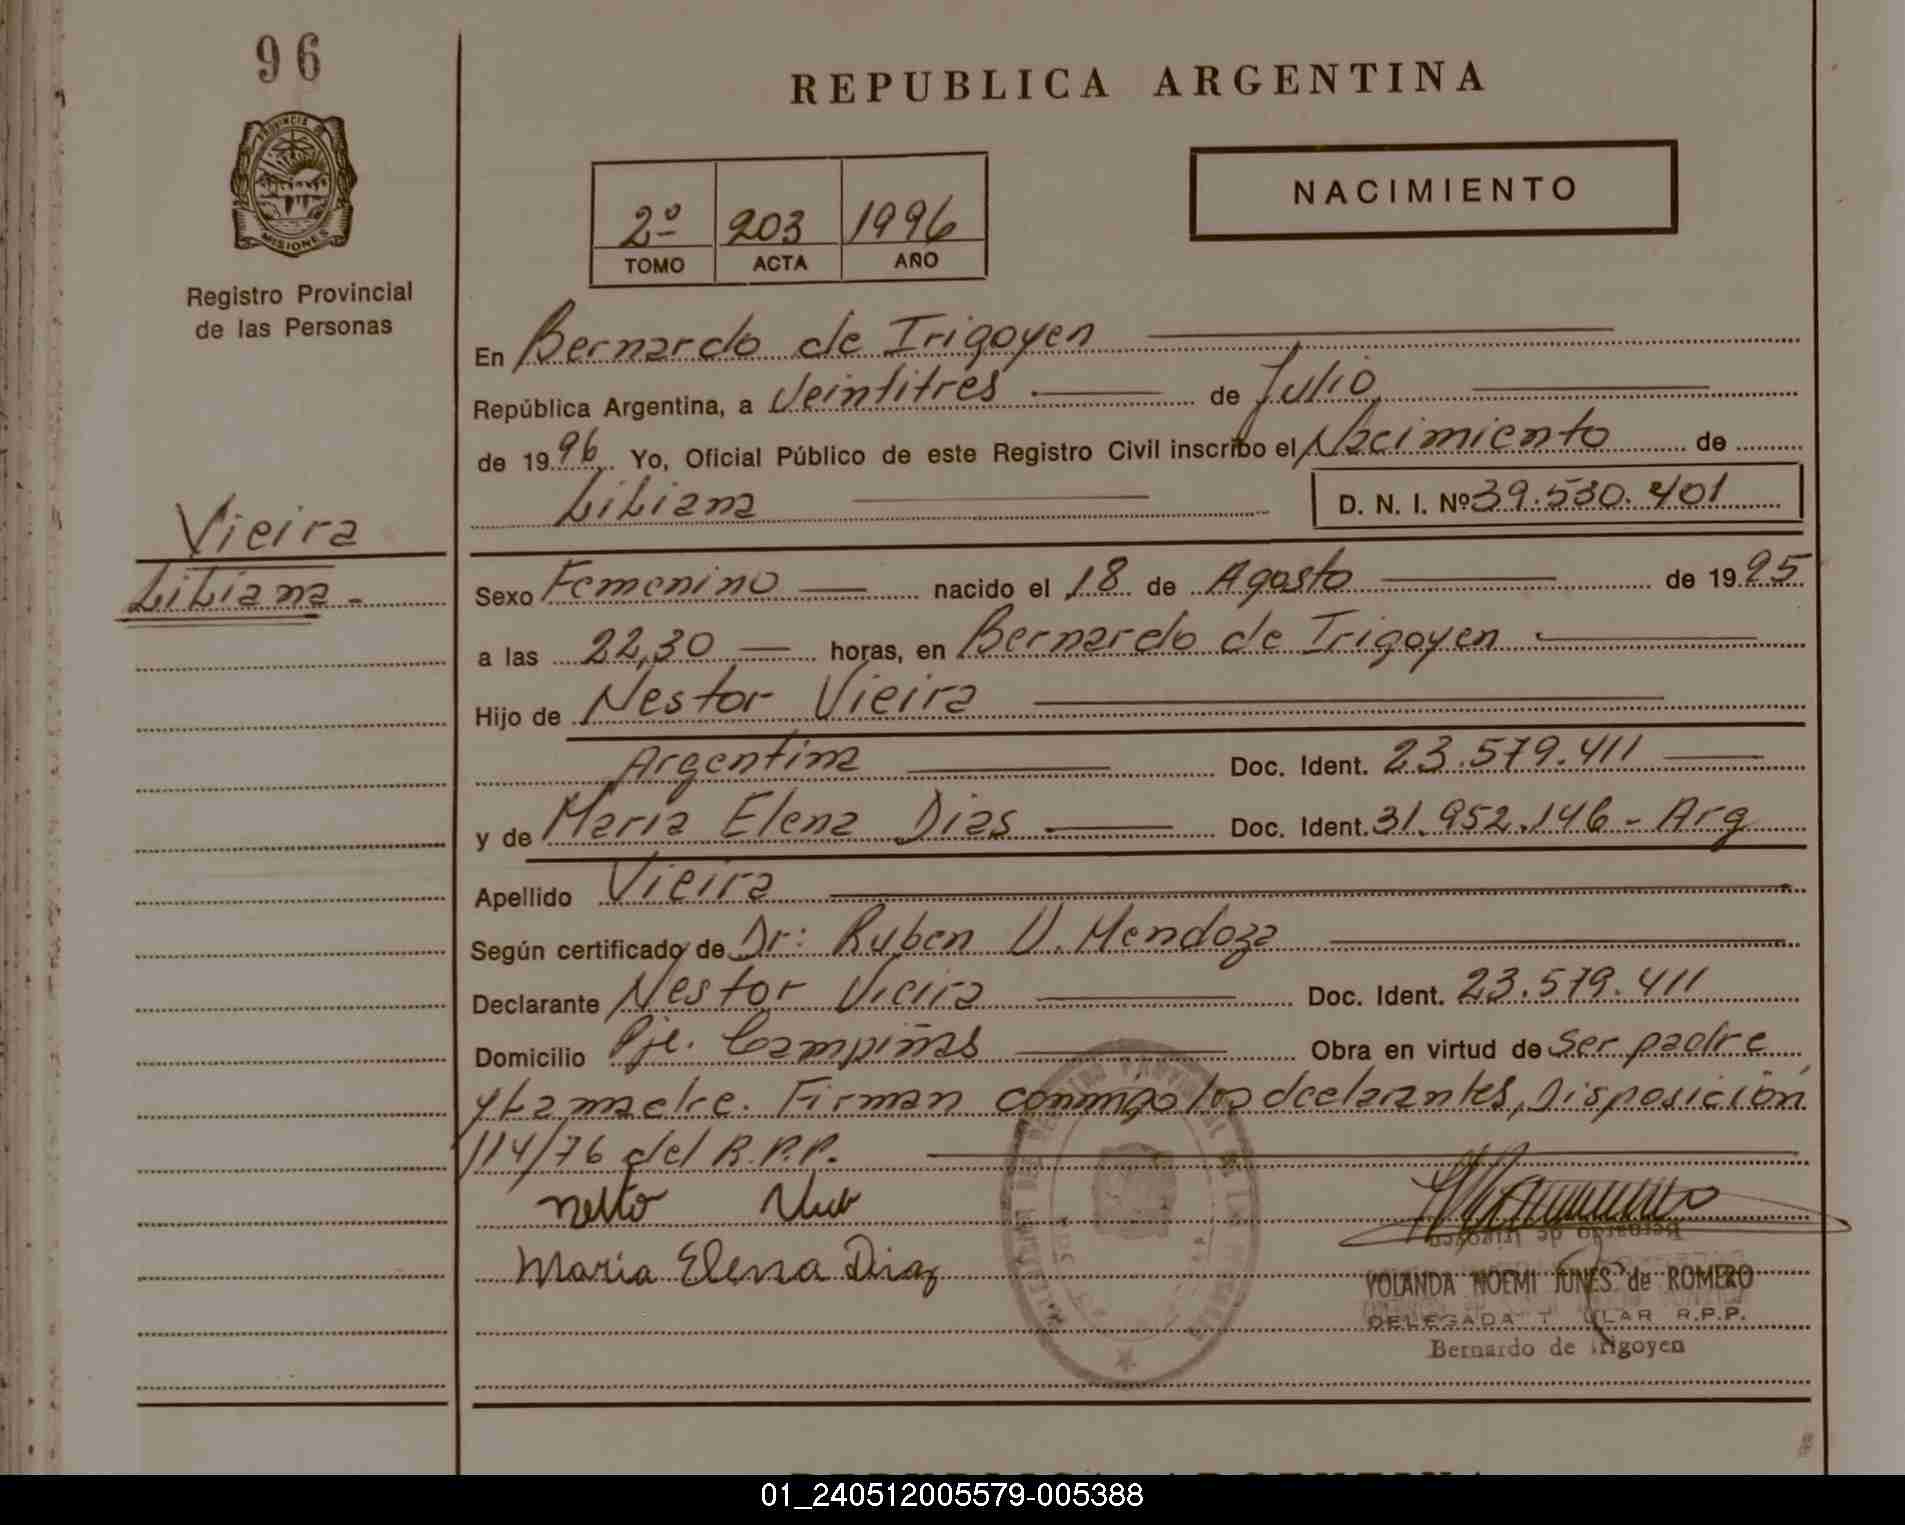 96
REPUBLICA ARGENTINA
PROVINCIA DE
MISIONES
Registro Provincial
de las Personas
NACIMIENTO
2º 203 1996
TOMO ACTA AÑO
En Bernardo de Irigoyen
República Argentina, a Veintitres de Julio
de 1996 Yo, Oficial Público de este Registro Civil inscribo el Nacimiento de
Liliana D. N. I. Nº 39.530.401
Vieira
Liliana -
Sexo Femenino nacido el 18 de Agosto de 1995
a las 22,30 horas, en Bernardo de Irigoyen
Hijo de Nestor Vieira
Argentina Doc. Ident. 23.579.411
y de Maria Elena Dias Doc. Ident. 31.952.146 - Arg
Apellido Vieira
Según certificado de Dr: Ruben V. Mendoza
Declarante Nestor Vieira Doc. Ident. 23.579.411
Domicilio Pje. Campiñas Obra en virtud de ser padre
y La madre. Firman conmigo los declarantes, Disposición
114/76 del R.P.P.
Maria Elena Diaz
Bernardo de Irigoyen
YOLANDA NOEMI JUNES de ROMERO
DELEGADA TITULAR R.P.P.
Bernardo de Irigoyen
01_240512005579-005388